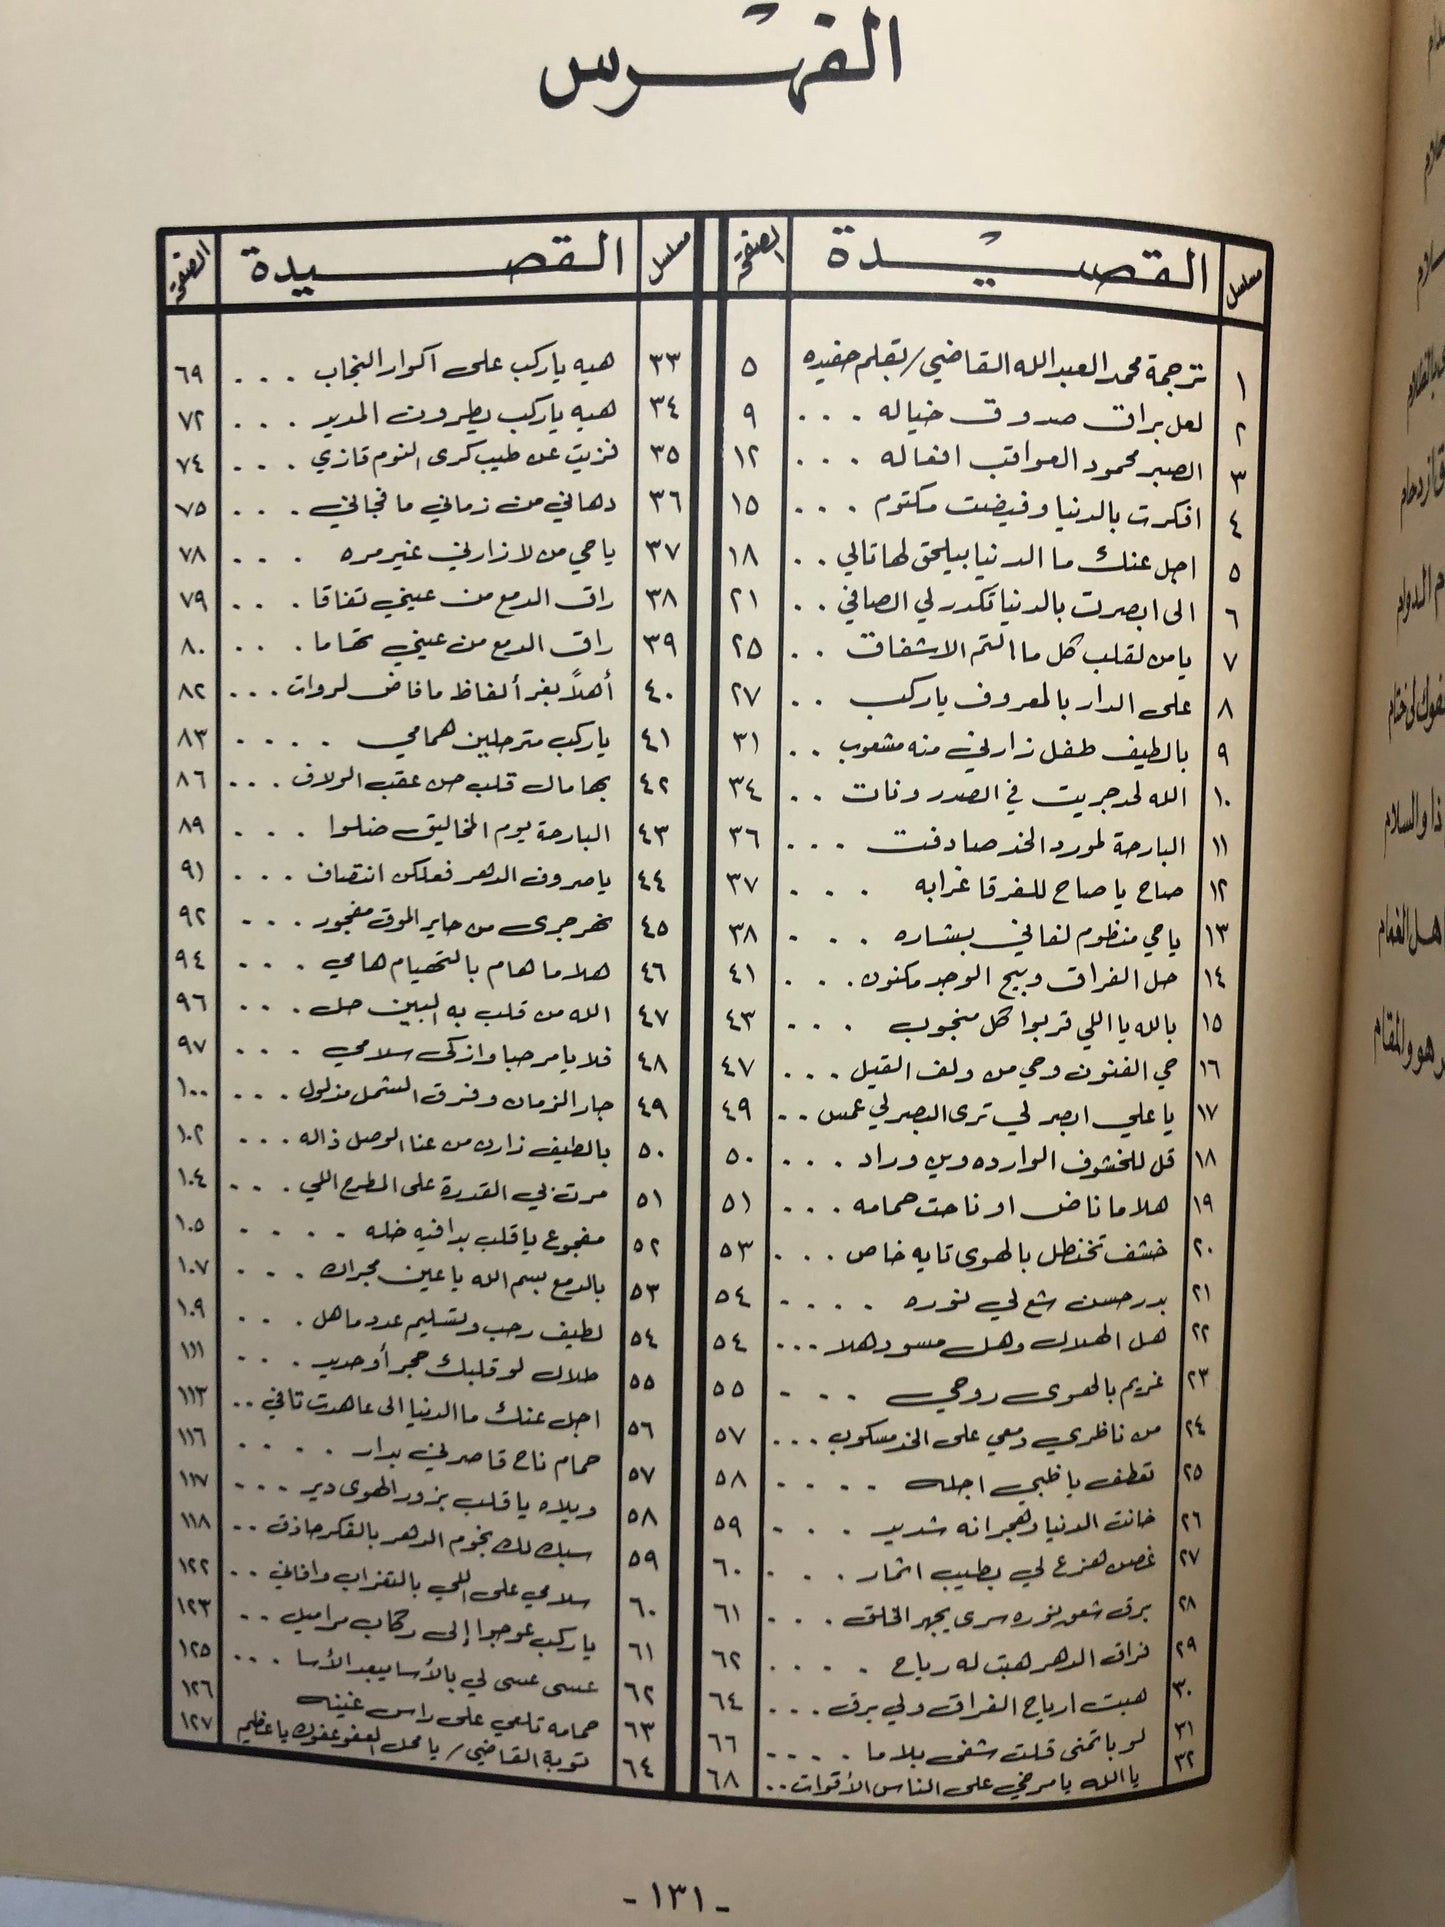 الفهرس
مسلسل القصيدة الصفحة
١ ترجمة محمد العبدالله القاضي / بقلم حفيده ٥
٢ لعل براق صدوق خياله . . . ٩
٣ الصبر محمود العواقب افعاله . . . ١٢
٤ افكرت بالدنيا وفيضت مكتوم . . . ١٥
٥ اجل عنك ما الدنيا بيلحق لها تالي . . ١٨
٦ الى ابصرت بالدنيا تكدر لي الصافي . . ٢١
٧ يا من لقلب كل ما التم الاشفاق . . ٢٥
٨ على الدار بالمعروف ياركب . . ٢٧
٩ بالطيف طفل زارني منه مشعوب . . ٣١
١٠ الله لحد جريت في الصدر ونات . . ٣٤
١١ البارحة لمورد الخد صادفت . . . ٣٦
١٢ صاح يا صاح للفرقا غرابه . . . ٣٧
١٣ ياحي منظوم لفاني بشاره . . . ٣٨
١٤ حل الفراق وبيح الوجد مكنون . . . ٤١
١٥ بالله يا اللي قربوا كل منجوب . . . ٤٣
١٦ حي الفنون وحي من ولف القيل . . . ٤٧
١٧ يا علي ابصر لي ترى البصر لي عمس . . ٤٩
١٨ قل للخشوف الوارده وين وراد . . . ٥٠
١٩ هلا ما ناض او ناحت حمامه . . . ٥١
٢٠ خشف تخنطل بالهوى تايه خاص . . . ٥٣
٢١ بدر حسن شع لي نوره . . . . ٥٤
٢٢ هل الهلال وهل مسود هلا . . . ٥٤
٢٣ غريم بالهوى روحي . . . ٥٥
٢٤ من ناظري دمعي على الخد مسكوب . . . ٥٧
٢٥ تعطف يا ظبي اجله . . . . ٥٨
٢٦ خانت الدنيا وهجرانه شديد . . . ٥٩
٢٧ غصن هزع لي بطيب اثمار . . . ٦٠
٢٨ برق شعق نوره سرى يجهر الخلق . . . ٦١
٢٩ فراق الدهر هبت له رياح . . . . ٦٢
٣٠ هبت ارياح الفراق ولي برق . . . ٦٤
٣١ لو باتمنى قلت شفى بلا ما . . . . ٦٦
٣٢ يا الله يا مرخي على الناس الأقوات . . ٦٨
مسلسل القصيدة الصفحة
٣٣ هيه ياركب على اكوار النجاب . . . ٦٩
٣٤ هيه ياركب يطرون المدير . . . ٧٢
٣٥ فزيت عن طيب كرى النوم قازي . . . ٧٤
٣٦ دهاني من زماني ما فجاني . . . ٧٥
٣٧ ياحي من لا زارني غير مره . . . ٧٨
٣٨ راق الدمع من عيني تفاقا . . . ٧٩
٣٩ راق الدمع من عيني تهاما . . . ٨٠
٤٠ أهلاً بغر ألفاظ ما فاض لروات . . . ٨٢
٤١ ياركب مترحلين همامي . . . . ٨٣
٤٢ بها مال قلب حن عقب الولاف . . . ٨٦
٤٣ البارحة يوم المخاليق ضلوا . . . ٨٩
٤٤ يا صروف الدهر فعلكن انتصاف . . . ٩١
٤٥ نهر جرى من حاير الموق مفجور . . . ٩٢
٤٦ هلا ما هام بالتهيام هامي . . . ٩٤
٤٧ الله من قلب به البين حل . . . ٩٦
٤٨ فلا يا مرحبا وازكى سلامي . . . ٩٧
٤٩ جار الزمان وفرق الشمل مذلول . . . ١٠٠
٥٠ بالطيف زارن من عنا الوصل ذاله . . . ١٠٢
٥١ مرت بي القدرة على المطرح اللي . . . ١٠٤
٥٢ مفجوع يا قلب بدا فيه خله . . . . ١٠٥
٥٣ بالدمع بسم الله يا عين مجراك . . . ١٠٧
٥٤ لطيف رحب وتسليم عدد ما هل . . . ١٠٩
٥٥ طلال لو قلبك حجر أو حديد . . . ١١١
٥٦ اجل عنك ما الدنيا الى عاهدت تافي . . ١١٣
٥٧ حمام ناح قاصرني بدار . . . . ١١٦
٥٨ ويلاه يا قلب بزور الهوى دير . . . ١١٧
٥٩ سبك لك نجوم الدهر بالفكر حاذق . . ١١٨
٦٠ سلامي على اللي بالتغزاب وافاني . . ١٢٢
٦١ ياركب عوجوا إلى ركاب مراميل . . ١٢٣
٦٢ عسى عسى لي بالأسا يبعد الأسا . . . ١٢٥
٦٣ حمامه تلعي على راس غينه ١٢٦
٦٤ توبة القاضي / يا محل العفو عفوك يا عظيم ١٢٧
- ١٣١ -